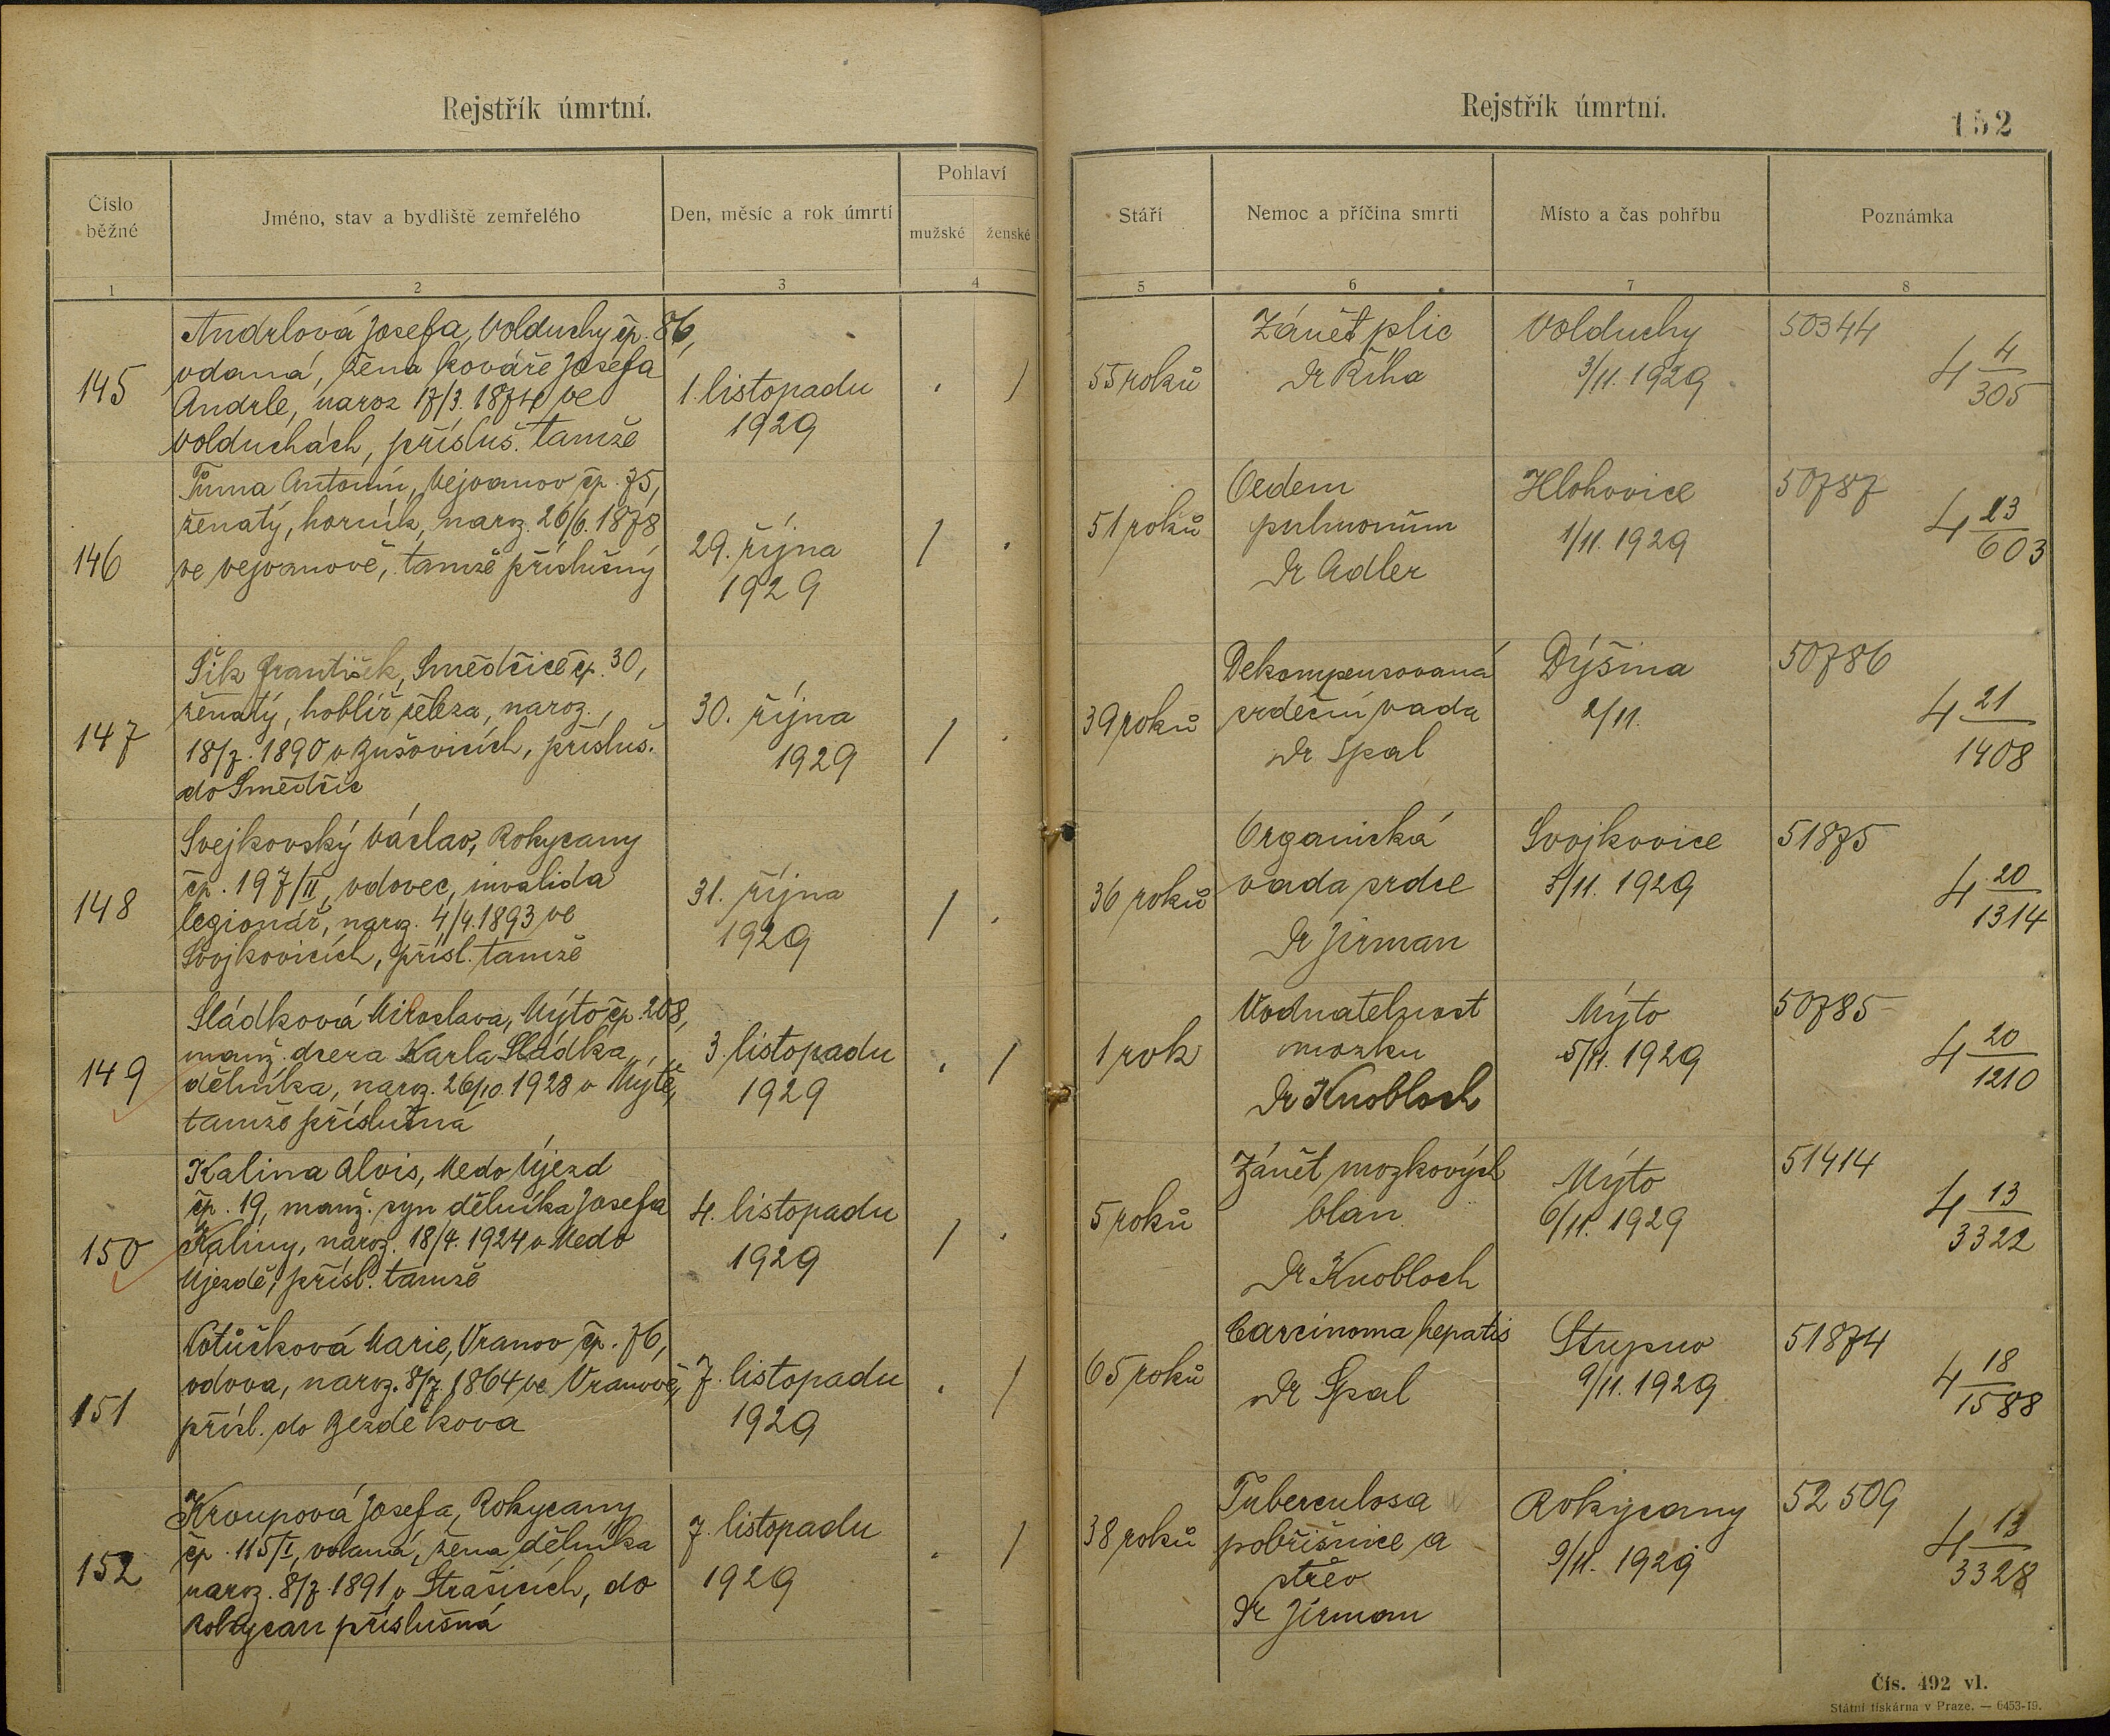 Rejstřík úmrtní.
Číslo běžné
Jméno, stav a bydliště zemřelého
Den, měsíc a rok úmrtí
Pohlaví
mužské
ženské
1
2
3
4
145
Andrlová Josefa, Volduchy čp. 86,
vdaná, žena kováře Josefa
Andrle, naroz 17/3. 1874 ve
Volduchách, přísluš. tamže
1. listopadu
1929
. /
146
Tůma Antonín, Vejvanov čp. 75,
ženatý, horník, naroz. 26/6. 1878
ve Vejvanově, tamže příslušný
29. října
1929
/ .
147
Šik František, Smědčice čp. 30,
ženatý, hoblíř železa, naroz.
18/7. 1890 v Bušovicích, přísluš.
do Smědčic
30. října
1929
/ .
148
Svejkovský Václav, Rokycany
čp. 197/II, vdovec, invalida
legionář, naroz. 4/4. 1893 ve
Svojkovicích, přísl. tamže
31. října
1929
/ .
149
Sládková Miroslava, Mýto čp. 208,
manž. dcera Karla Sládka,
dělníka, naroz. 26/10. 1928 v Mýtě,
tamže příslušná
3. listopadu
1929
. /
150
Kalina Alois, Medo Újezd
čp. 19, manž. syn dělníka Josefa
Kaliny, naroz. 18/4. 1924 v Medo
Újezdě, přísl. tamže
4. listopadu
1929
/ .
151
Votůčková Marie, Vranov čp. 76,
vdova, naroz. 8/7. 1864 ve Vranově,
přísl. do Bezděkova
7. listopadu
1929
. /
152
Kroupová Josefa, Rokycany
čp. 115/I, vdaná, žena dělníka
naroz. 8/7. 1891 v Strašicích, do
Rokycan příslušná
7. listopadu
1929
. /
Rejstřík úmrtní.
152
Stáří
Nemoc a příčina smrti
Místo a čas pohřbu
Poznámka
5
6
7
8
55 roků
Zánět plic
Dr Říha
Volduchy
3/11. 1929
50344
4 4/305
51 roků
Oedem
pulmonum
Dr Adler
Hlohovice
1/11. 1929
50787
4 23/603
39 roků
Dekompensovaná
srdeční vada
Dr Spal
Dýšina
2/11.
50786
4 21/1408
36 roků
Organická
vada srdce
Dr Jirman
Svojkovice
3/11. 1929
51875
4 20/1314
1 rok
Vodnatelnost
mozku
Dr Knobloch
Mýto
5/11. 1929
50785
4 20/1210
5 roků
Zánět mozkových
blan
Dr Knobloch
Mýto
6/11. 1929
51414
4 13/3322
65 roků
Carcinoma hepatis
Dr Spal
Stupno
9/11. 1929
51874
4 18/1588
38 roků
Tuberculosa
pobřišnice a
střev
Dr Jirman
Rokycany
9/11. 1929
52509
4 13/3328
Čís. 492 vl.
Státní tiskárna v Praze. — 6453-19.